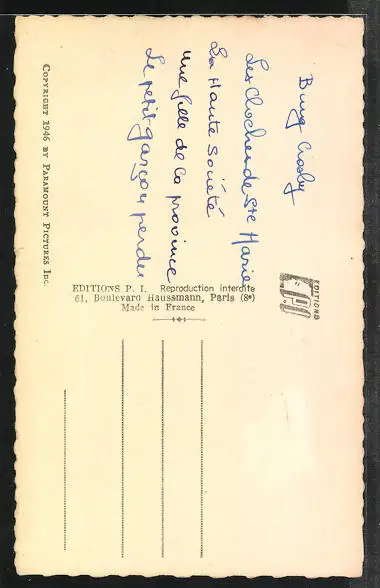 Bing Crosby
Les Cloches de Ste Marie
La Haute Société
Une fille de la province
Le petit garçon perdu
COPYRIGHT 1946 BY PARAMOUNT PICTURES INC.
EDITIONS P. I. Reproduction interdite
61, Boulevard Haussmann, Paris (8e)
Made in France
EDITIONS